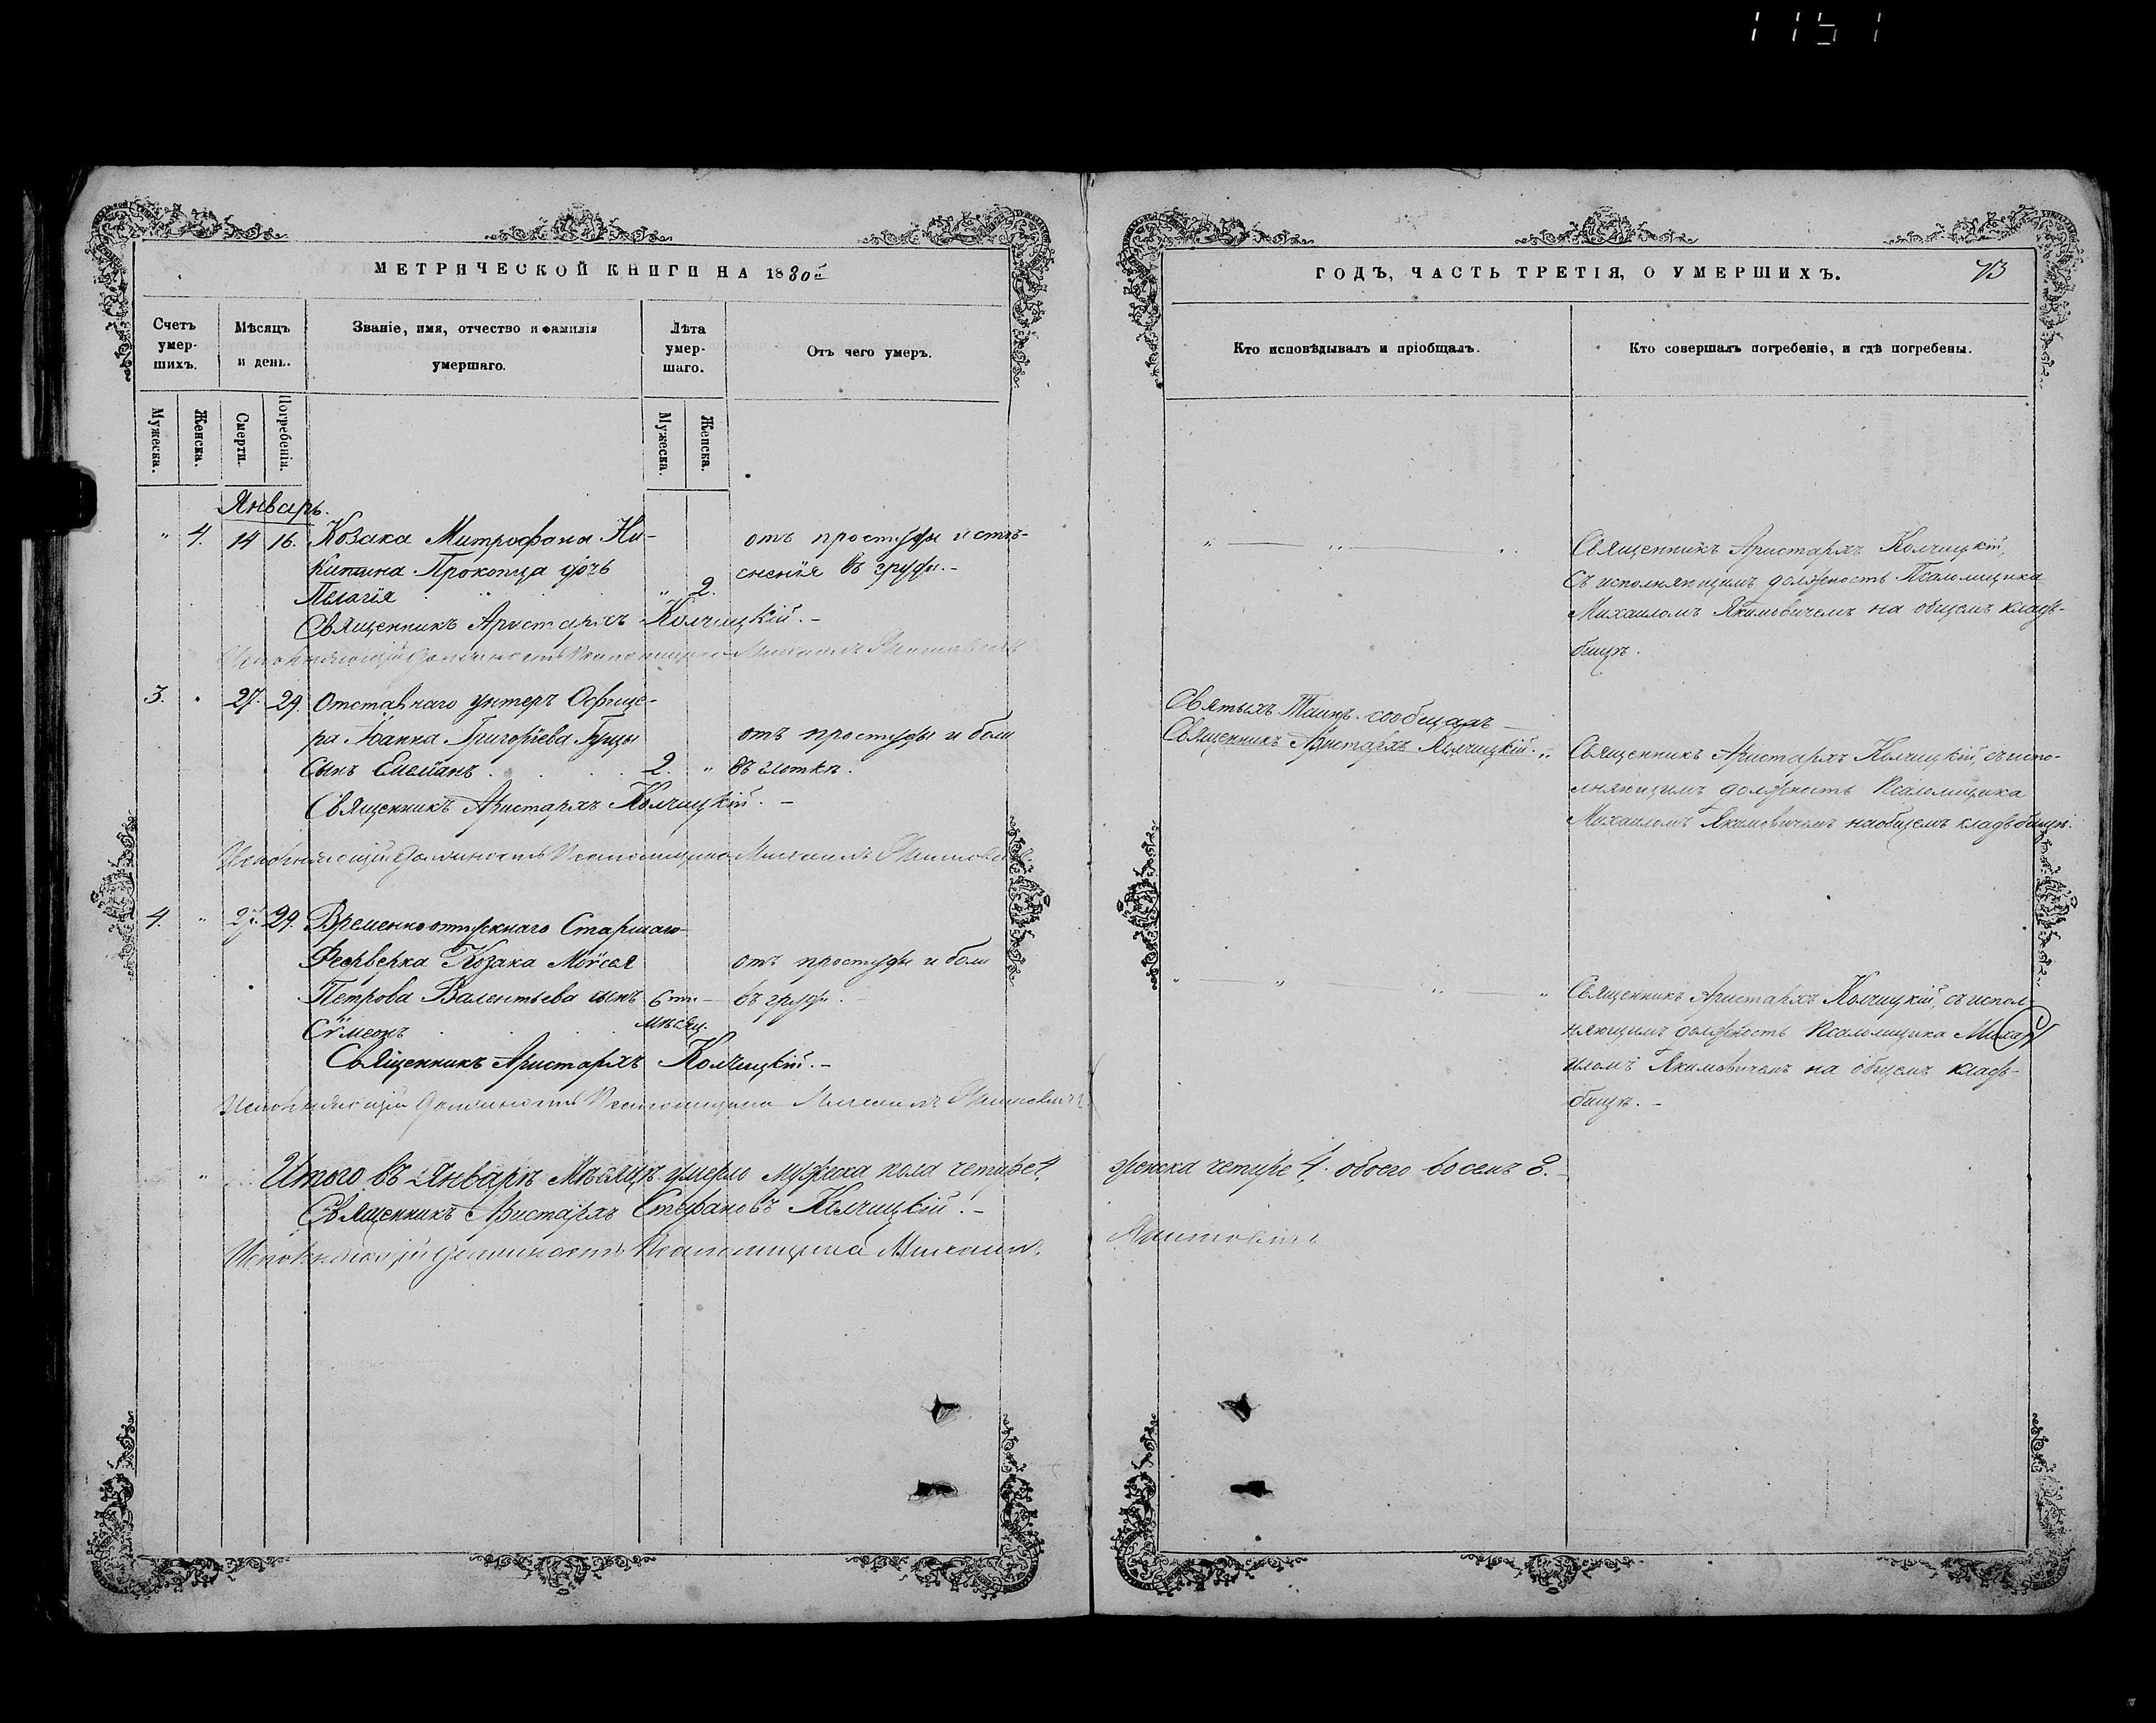 1151
МЕТРИЧЕСКОЙ КНИГИ НА 1880й
Счетъ умер-шихъ.
Мѣсяцъ и день.
Званіе, имя, отчество и фамилія умершаго.
Лѣта умер-шаго.
Отъ чего умеръ.
Мужеска.
Женска.
Смерти.
Погребенія.
Мужеска.
Женска.
Январь.
" 4. 14 16. Козака Митрофана Ни- отъ простуды и стѣ-
китина Прокопца дочь сненія въ груди.-
Пелагія " 2.
Священникъ Аристархъ Колчицкій.-
Исполняющій должность Псаломщика Михаилъ Якимовичъ
3. " 27. 29. Отставнаго унтеръ Офице-
ра Іоанна Григоріева Гуцы отъ простуды и боли
сынъ Емеліанъ 2. " въ глоткѣ.
Священникъ Аристархъ Колчицкій.-
Исполняющій должность Псаломщика Михаилъ Якимовичъ
4. " 27. 29. Временноотпускнаго Старшаго
Феерверка Козака Моѵсея отъ простуды и боли
Петрова Валентьева сынъ 6ти - въ груди.-
Сѵмеонъ мѣсяц.
Священникъ Аристархъ Колчицкій.-
Исполняющій должность Псаломщика Михаилъ Якимовичъ
Итого въ Январѣ Мѣсяцѣ умерло мужеска пола четыре 4,
Священникъ Аристархъ Стефановъ Колчицкій.-
Исполняющій должность Псаломщика Михаилъ
ГОДЪ, ЧАСТЬ ТРЕТІЯ, О УМЕРШИХЪ.
Кто исповѣдывалъ и пріобщалъ.
Кто совершалъ погребеніе, и гдѣ погребены.
Священникъ Аристархъ Колчицкій,
съ исполняющимъ должность Псаломщика
Михаиломъ Якимовичемъ на общемъ клад-
бищѣ.
Святыхъ Таинъ сообщалъ
Священникъ Аристархъ Колчицкій.
Священникъ Аристархъ Колчицкій, съ испо-
лняющимъ должность Псаломщика
Михаиломъ Якимовичемъ на общемъ кладбищѣ.
Священникъ Аристархъ Колчицкій, съ испол-
няющимъ должность Псаломщика Миха-
иломъ Якимовичемъ на общемъ клад-
бищѣ.-
женска четыре 4. обоего восемь 8.-
Якимовичъ